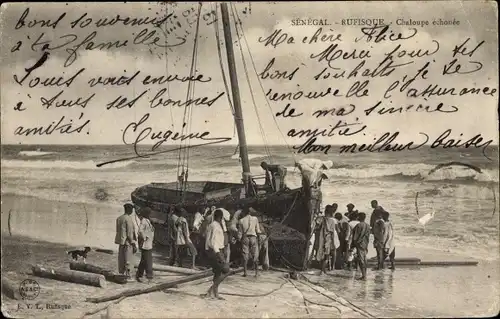 SÉNÉGAL. - RUFISQUE - Chaloupe échouée
bons souvenirs
à ta famille
Louis vous envoie
à tous ses bonnes
amitiés
Eugénie
Ma chère Alice
Merci pour tes
bons souhaits je te
renouvelle l'assurance
de ma sincère
amitié
Mon meilleur baiser
E. V. L., Rufisque